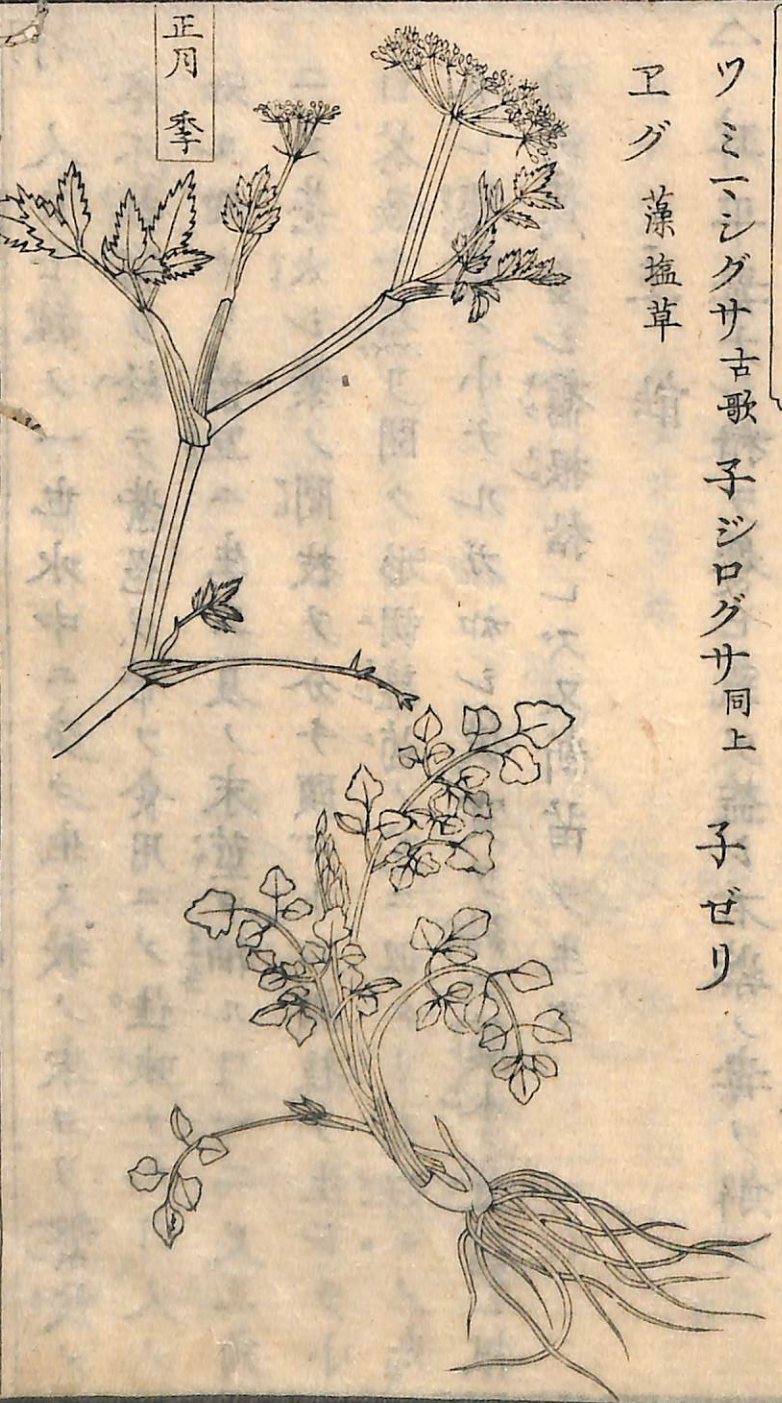 ツミマシグサ古歌 子ジログサ同上 子ゼリ
ヱグ 藻塩草
正月 季